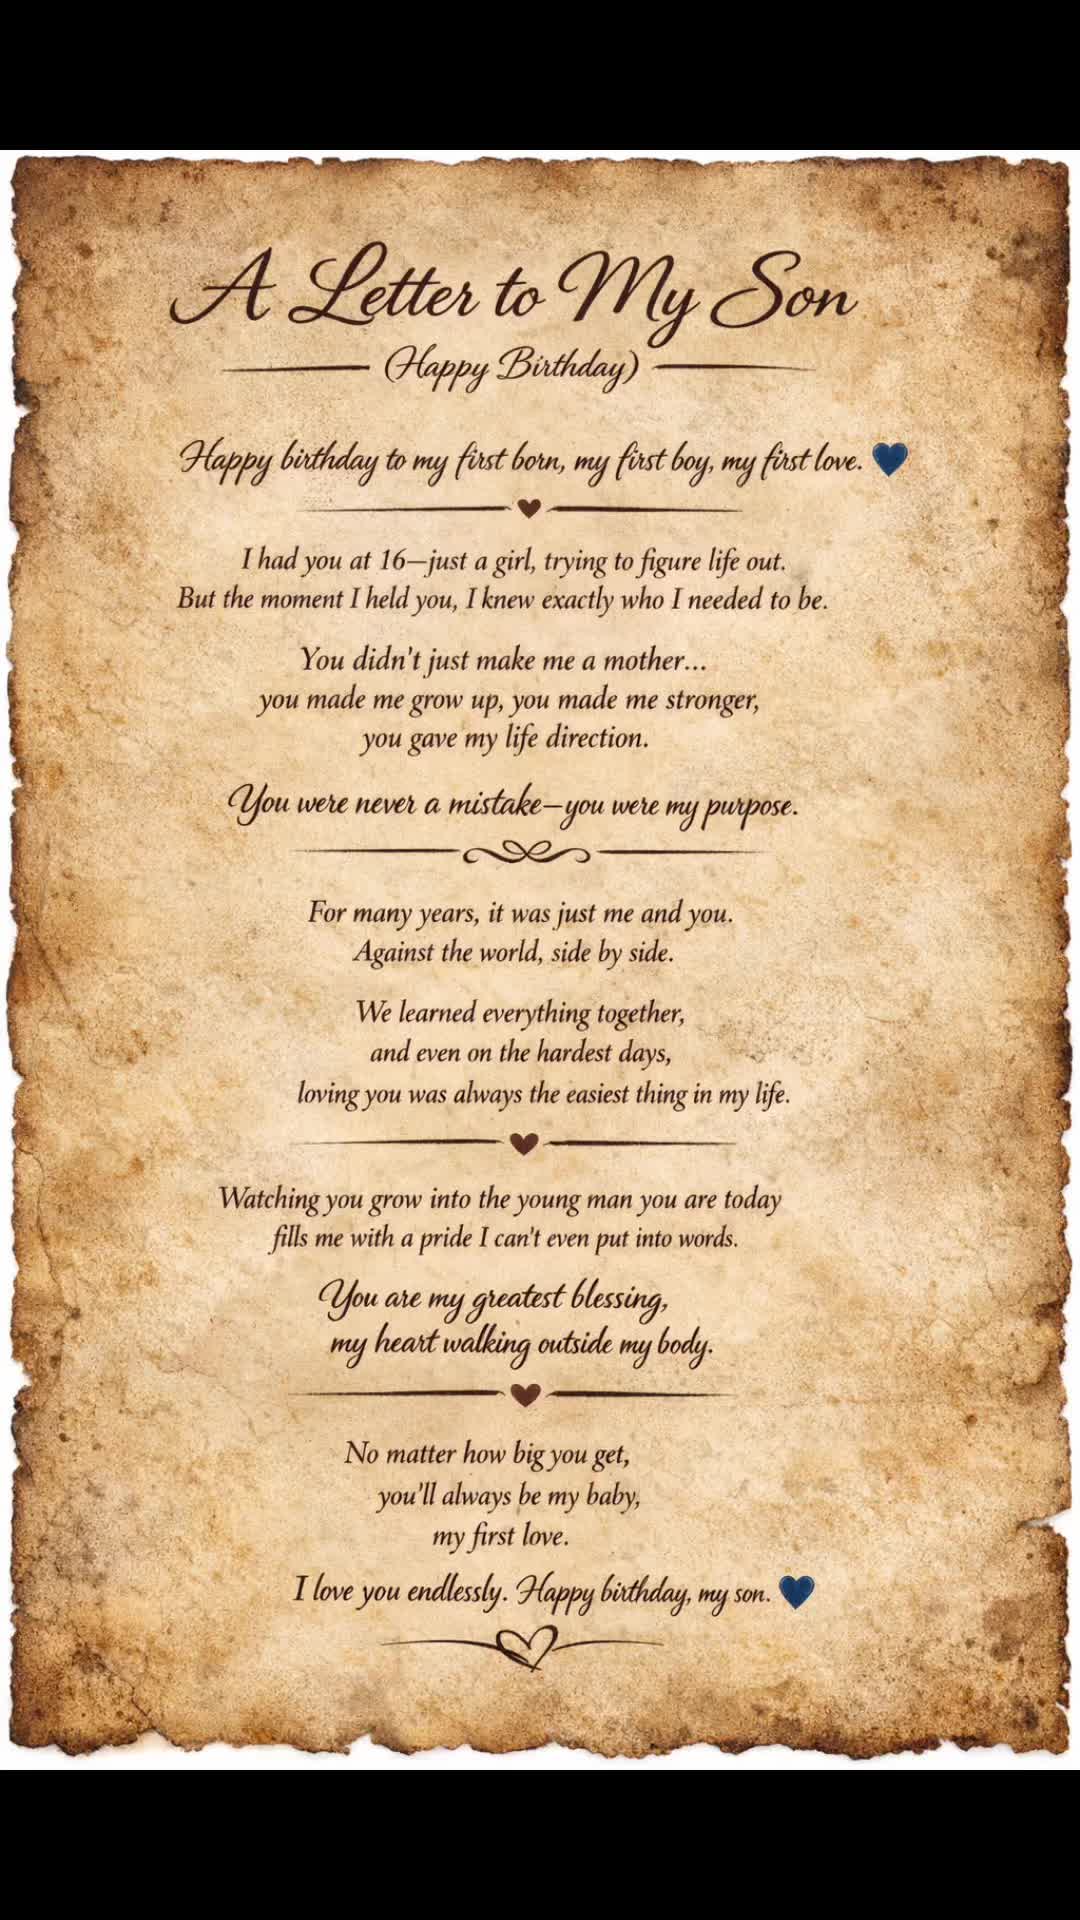 A Letter to My Son
(Happy Birthday)
Happy birthday to my first born, my first boy, my first love. 💙
I had you at 16—just a girl, trying to figure life out.
But the moment I held you, I knew exactly who I needed to be.
You didn't just make me a mother...
you made me grow up, you made me stronger,
you gave my life direction.
You were never a mistake—you were my purpose.
For many years, it was just me and you.
Against the world, side by side.
We learned everything together,
and even on the hardest days,
loving you was always the easiest thing in my life.
Watching you grow into the young man you are today
fills me with a pride I can't even put into words.
You are my greatest blessing,
my heart walking outside my body.
No matter how big you get,
you'll always be my baby,
my first love.
I love you endlessly. Happy birthday, my son. 💙